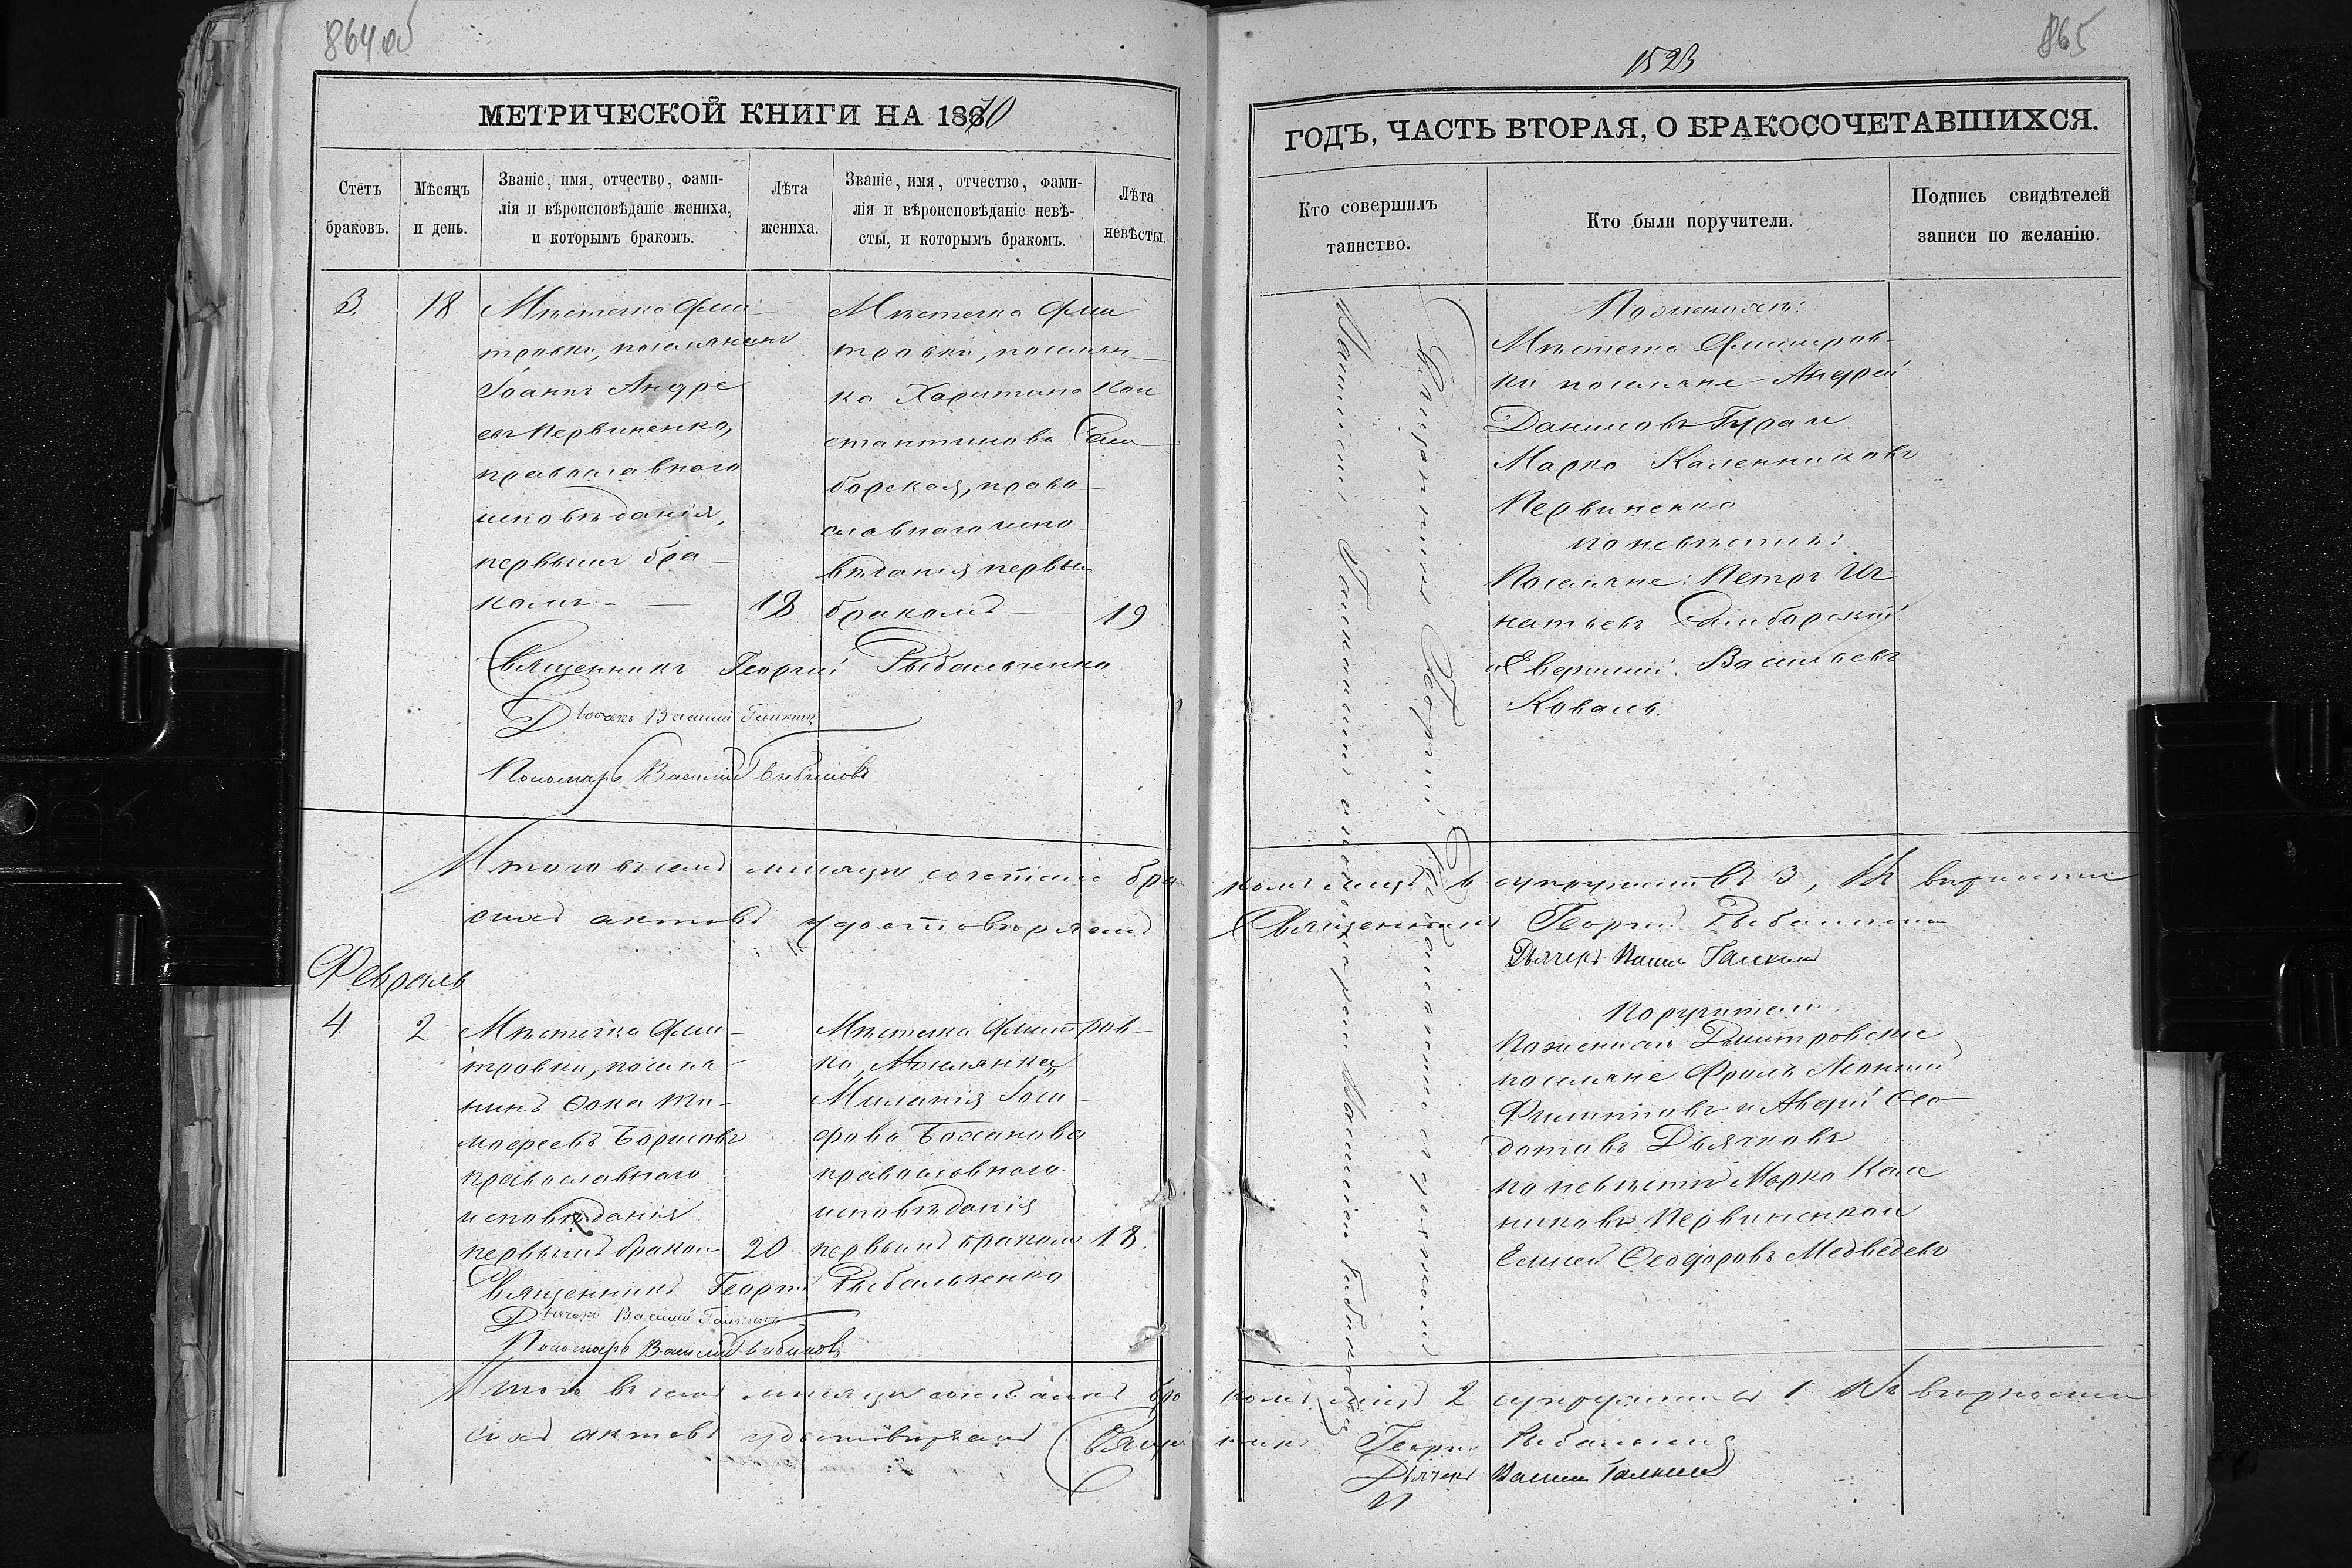 864 об
МЕТРИЧЕСКОЙ КНИГИ НА 1870
Стетъ браковъ.
Мѣсяцъ и день.
Званіе, имя, отчество, фами-
лія и вѣроисповѣданіе жениха,
и которымъ бракомъ.
Лѣта жениха.
Званіе, имя, отчество, фами-
лія и вѣроисповѣданіе невѣ-
сты, и которымъ бракомъ.
Лѣта невѣсты.
3.
18
Мѣстечка Дми-
тровки, поселянинъ
Іоаннъ Андре
евъ Первиненко,
православнаго
исповѣданія,
первымъ бра-
комъ - —
18
Мѣстечка Дми
тровки, поселян-
ка Харитина Кон
стантинова Сам-
борская, право-
славнаго испо-
вѣданія первым
бракомъ —
19
Священникъ Георгій Рыбальченко
Дьячекъ Василій Галкинъ
Пономарь Василій Бибиковъ
Итого въ семъ мѣсяцѣ сочетано бра
сихъ актовъ удостовѣряемъ
Февраль
4
2
Мѣстечка Дми-
тровки, поселя-
нинъ Ѳока Ти-
моѳеевъ Борисовъ
православнаго
исповѣданія
первымъ браком-
20
Мѣстечка Дмитров-
ки, поселянка
Миланія Іоси-
фова Баханова
православнаго
исповѣданія
первымъ бракомъ
18.
Священникъ Георгій Рыбальченко
Дьячекъ Василій Галкинъ
Пономарь Василій Бибиковъ
Итого въ семъ мѣсяцѣ бра
сихъ актовъ удостовѣряемъ Свящ
1523
865
ГОДЪ, ЧАСТЬ ВТОРАЯ, О БРАКОСОЧЕТАВШИХСЯ.
Кто совершилъ
таинство.
Кто были поручители.
Подпись свидѣтелей
записи по желанію.
Священникъ Георгій Рыбальченко съ дьячкомъ
Василіемъ Галкинымъ и пономаремъ Василіемъ Бибиковымъ
По женихѣ:
Мѣстечка Дмитров-
ки поселяне Андрей
Даниловъ Гура и
Марко Каленниковъ
Первиненко
по невѣстѣ:
Поселяне: Петръ Иг
натьевъ Самборскій
и Евфимій Васильевъ
Коваль.
комъ лицъ 6 супружествъ 3, Въ вѣрности
Священникъ Георгій Рыбальченко
Дьячекъ Васил Галкинъ
Поручители
По женихѣ Дмитровскіе
поселяне Фролъ Леонтій
Филиповъ и Аверій Ѳео-
дотовъ Дьячковъ
по невѣстѣ Марко Кале
никовъ Первиненко и
Елисей Ѳеодоровъ Медведевъ
комъ лицъ 2 супружество 1 Въ вѣрности
никъ Георгій Рыбальченко
Дьячекъ Васили Галкинъ